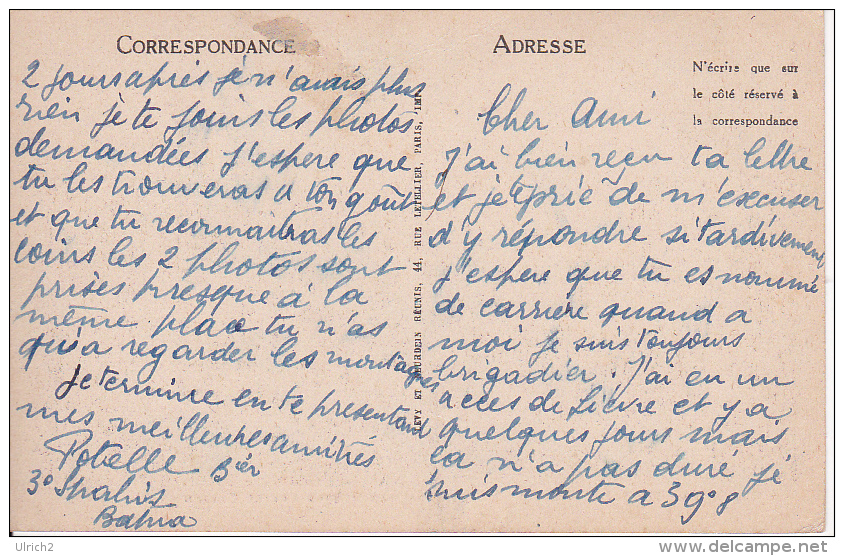 ADRESSE
N'écrire que sur
le côté réservé à
la correspondance
Cher Ami
J'ai bien reçu ta lettre
et je te prie de m'excuser
d'y répondre si tardivement
J'espere que tu es nommé
de carriere quand a
moi je suis toujours
brigadier. J'ai eu un
acces de fievre et y a
quelques jours mais
ca n'a pas duré je
suis monte a 39°8
LEVY ET NEURDEIN RÉUNIS, 44, RUE LETELLIER, PARIS, IMP.
CORRESPONDANCE
2 jours après je n'avais plus
rien je te joins les photos
demandées j'espere que
tu les trouveras a ton goût
et que tu reconnaitras les
coins les 2 photos sont
prises presque a la
même place tu n'as
qu'a regarder les montagnes
Je termine en te presentant
mes meilleures amitiés
Potelle Bier
3° Spahis
Batna
Ulrich2
http://www.delcampe.net